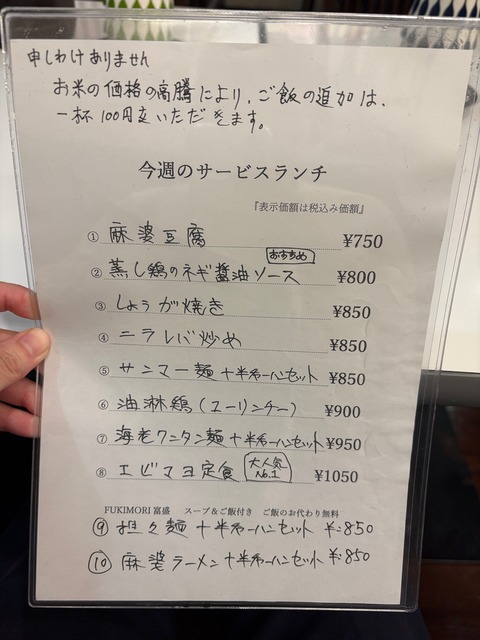 申しわけありません
お米の価格の高騰により、ご飯の追加は、
一杯100円をいただきます。
今週のサービスランチ
『表示価額は税込み価額』
① 麻婆豆腐 ¥750
おすすめ
② 蒸し鶏のネギ醤油ソース ¥800
③ しょうが焼き ¥850
④ ニラレバ炒め ¥850
⑤ サンマー麺+半チャーハンセット ¥850
⑥ 油淋鶏(ユーリンチー) ¥900
⑦ 海老ワンタン麺+半チャーハンセット ¥950
⑧ エビマヨ定食 大人気No.1 ¥1050
FUKIMORI富盛 スープ&ご飯付き ご飯のお代わり無料
⑨ 担々麺+半チャーハンセット ¥:850
⑩ 麻婆ラーメン+半チャーハンセット ¥:850